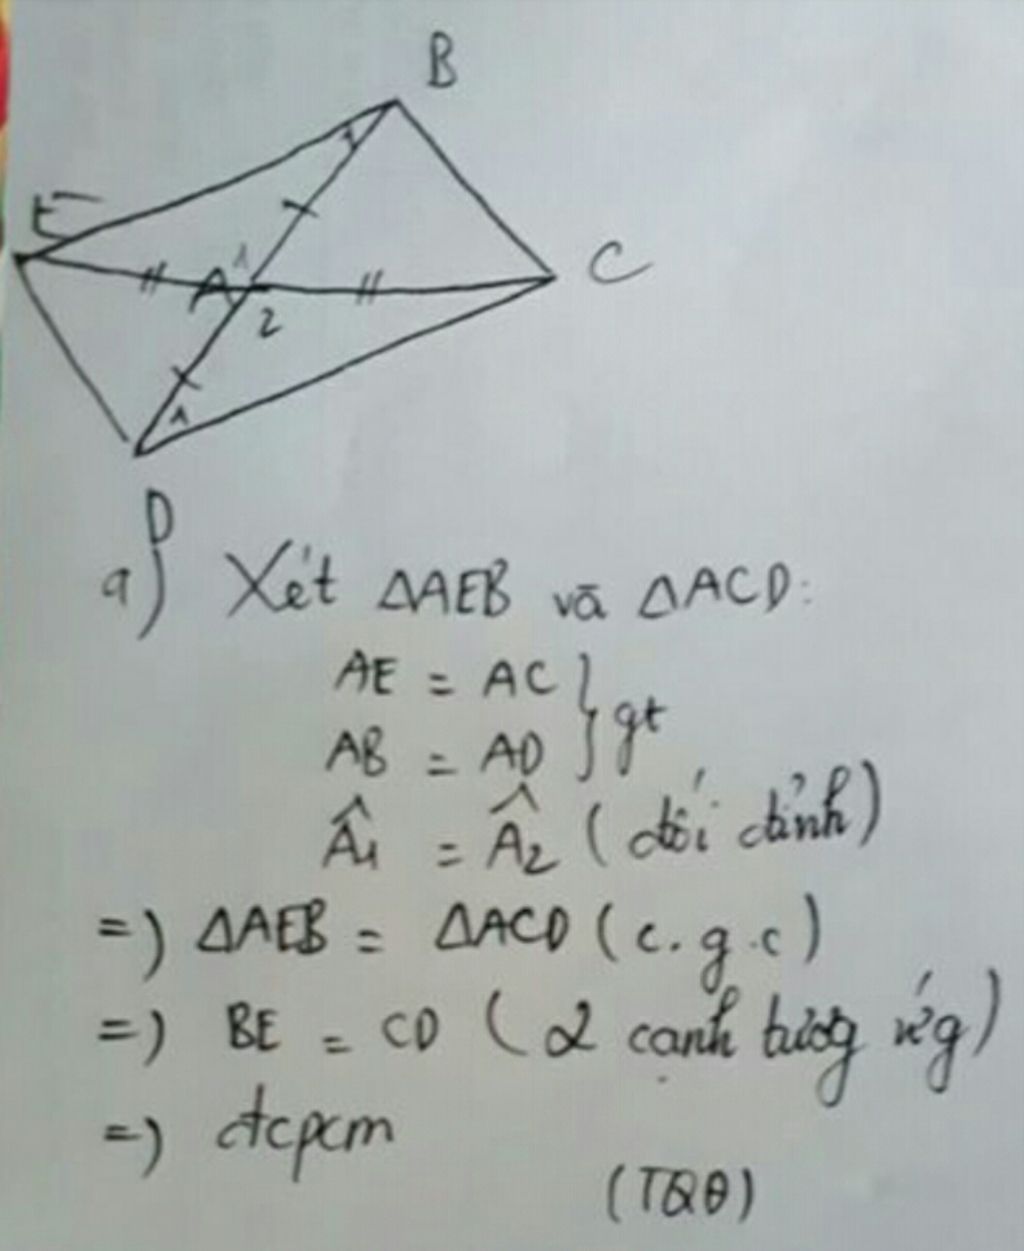 B
1
E
A
1
C
2
1
D
a) Xét ΔAEB và ΔACD:
AE = AC } gt
AB = AD
Â1 = Â2 (đối đỉnh)
=) ΔAEB = ΔACD (c.g.c)
=) BE = CD (2 cạnh tương ứg)
=) đcpcm
(TQĐ)